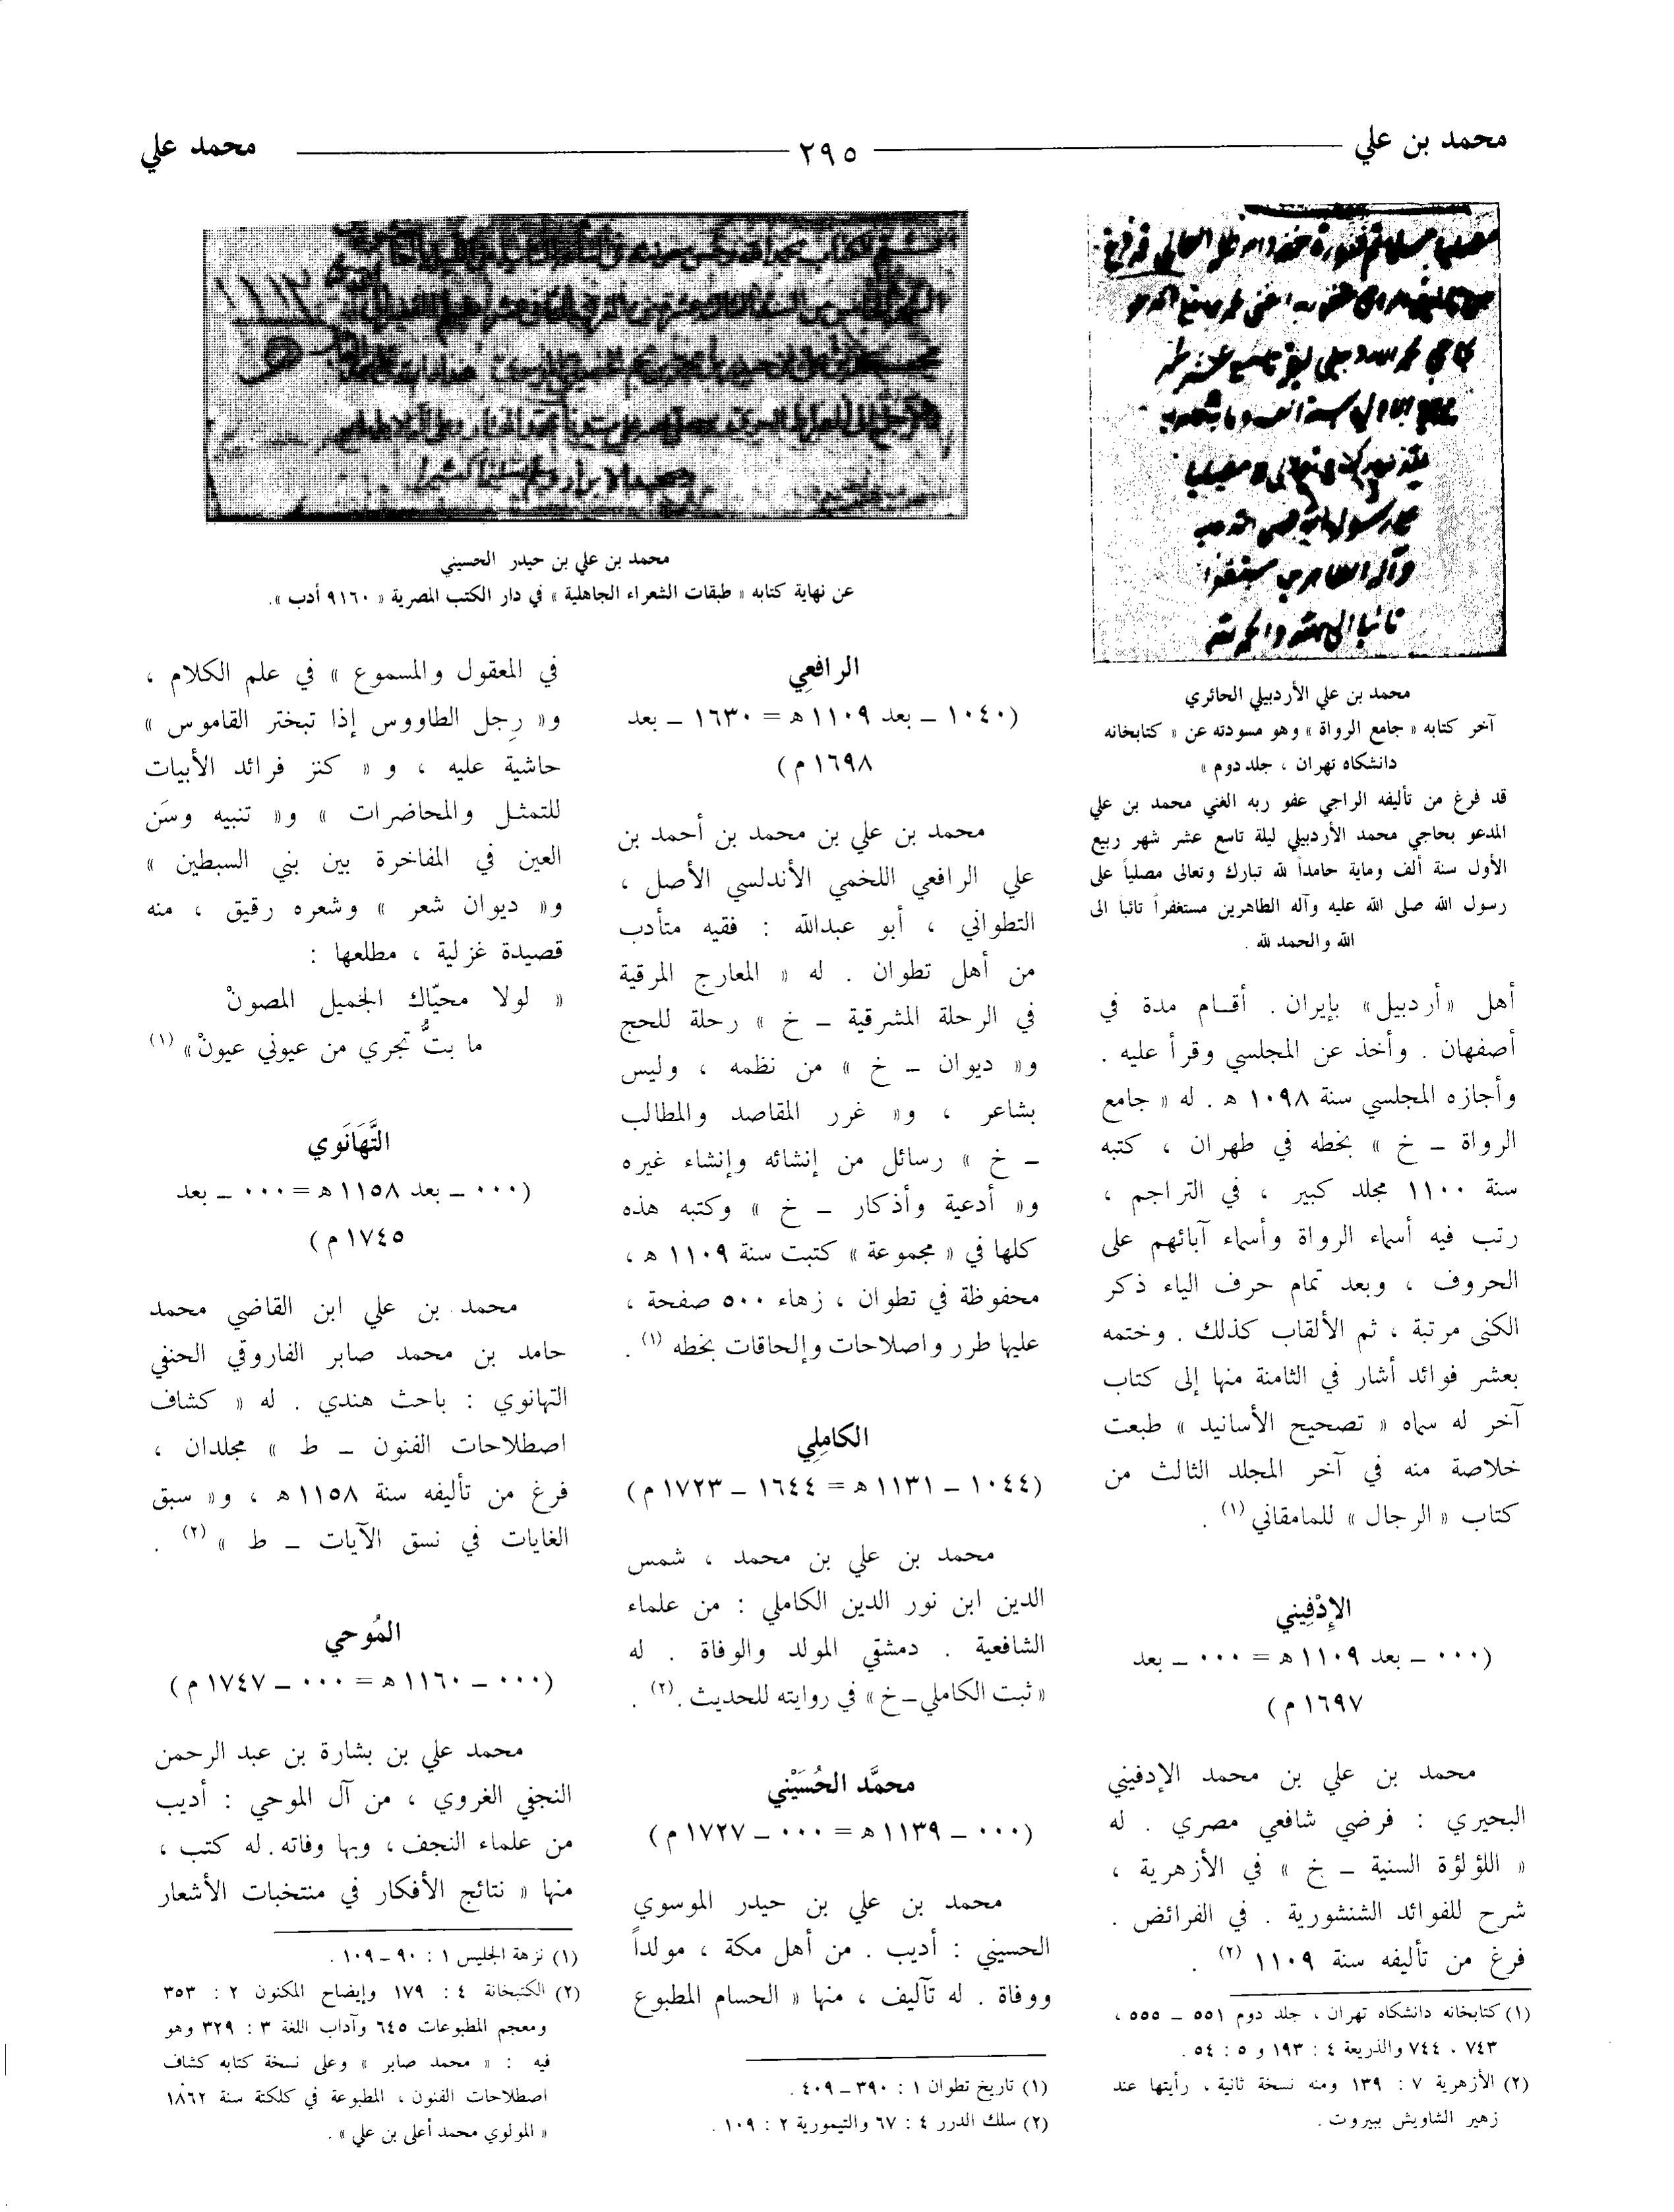 محمد بن علي
٢٩٥
محمد علي
محمد بن علي الأردبيلي الحائري
آخر كتابه « جامع الرواة » وهو مسودته عن « كتابخانه
دانشكاه تهران ، جلد دوم »
قد فرغ من تأليفه الراجي عفو ربه الغني محمد بن علي
المدعو بحاجي محمد الأردبيلي ليلة تاسع عشر شهر ربيع
الأول سنة ألف وماية حامداً لله تبارك وتعالى مصلياً على
رسول الله صلى الله عليه وآله الطاهرين مستغفراً تائبا الى
الله والحمد لله .
أهل «أردبيل» بإيران . أقـام مدة في
أصفهان . وأخذ عن المجلسي وقرأ عليه .
وأجازه المجلسي سنة ١٠٩٨ ه . له « جامع
الرواة – خ » بخطه في طهران ، كتبه
سنة ١١٠٠ مجلد كبير ، في التراجم ،
رتب فيه أسماء الرواة وأسماء آبائهم على
الحروف ، وبعد تمام حرف الياء ذكر
الكنى مرتبة ، ثم الألقاب كذلك . وختمه
بعشر فوائد أشار في الثامنة منها إلى كتاب
آخر له سماه « تصحيح الأسانيد » طبعت
خلاصة منه في آخر المجلد الثالث من
كتاب « الرجال » للمامقاني (١) .
الإِدْفِيني
(٠٠٠ – بعد ١١٠٩ ه = ٠٠٠ – بعد
١٦٩٧ م)
محمد بن علي بن محمد الإدفيني
البحيري : فرضي شافعي مصري . له
« اللؤلؤة السنية – خ » في الأزهرية ،
شرح للفوائد الشنشورية . في الفرائض .
فرغ من تأليفه سنة ١١٠٩ (٢) .
(١) كتابخانه دانشكاه تهران ، جلد دوم ٥٥١ – ٥٥٥ ،
٧٤٣ ، ٧٤٤ والذريعة ٤ : ١٩٣ و ٥ : ٥٤ .
(٢) الأزهرية ٧ : ١٣٩ ومنه نسخة ثانية ، رأيتها عند
زهير الشاويش ببيروت .
محمد بن علي بن حيدر الحسيني
عن نهاية كتابه « طبقات الشعراء الجاهلية » في دار الكتب المصرية « ٩١٦٠ أدب ».
الرافعِي
(١٠٤٠ – بعد ١١٠٩ ه = ١٦٣٠ – بعد
١٦٩٨ م)
محمد بن علي بن محمد بن أحمد بن
علي الرافعي اللخمي الأندلسي الأصل ،
التطواني ، أبو عبدالله : فقيه متأدب
من أهل تطوان . له « المعارج المرقية
في الرحلة المشرقية – خ » رحلة للحج
و« ديوان – خ » من نظمه ، وليس
بشاعر ، و« غرر المقاصد والمطالب
– خ » رسائل من إنشائه وإنشاء غيره
و« أدعية وأذكار – خ » وكتبه هذه
كلها في « مجموعة » كتبت سنة ١١٠٩ ه ،
محفوظة في تطوان ، زهاء ٥٠٠ صفحة ،
عليها طرر واصلاحات وإلحاقات بخطه (١) .
الكامِلِي
(١٠٤٤ – ١١٣١ ه = ١٦٤٤ – ١٧٢٣ م)
محمد بن علي بن محمد ، شمس
الدين ابن نور الدين الكاملي : من علماء
الشافعية . دمشقي المولد والوفاة . له
« ثبت الكاملي – خ » في روايته للحديث . (٢) .
محمَّد الحُسَيْني
(٠٠٠ – ١١٣٩ ه = ٠٠٠ – ١٧٢٧ م)
محمد بن علي بن حيدر الموسوي
الحسيني : أديب . من أهل مكة ، مولداً
ووفاة . له تآليف ، منها « الحسام المطبوع
(١) تاريخ تطوان ١ : ٣٩٠ – ٤٠٩ .
(٢) سلك الدرر ٤ : ٦٧ والتيمورية ٢ : ١٠٩ .
في المعقول والمسموع » في علم الكلام ،
و« رِجل الطاووس إذا تبختر القاموس »
حاشية عليه ، و « كنز فرائد الأبيات
للتمثـل والمحاضرات » و« تنبيه وسَن
العين في المفاخرة بين بني السبطين »
و« ديوان شعر » وشعره رقيق ، منه
قصيدة غزلية ، مطلعها :
« لولا محيّاك الجميل المصونْ
ما بتُّ تجري من عيوني عيونْ» (١)
التَّهَانَوي
(٠٠٠ – بعد ١١٥٨ ه = ٠٠٠ – بعد
١٧٤٥ م)
محمد بن علي ابن القاضي محمد
حامد بن محمد صابر الفاروقي الحنفي
التهانوي : باحث هندي . له « كشاف
اصطلاحات الفنون – ط » مجلدان ،
فرغ من تأليفه سنة ١١٥٨ ه ، و« سبق
الغايات في نسق الآيات – ط » (٢) .
المُوحي
(٠٠٠ – ١١٦٠ ه = ٠٠٠ – ١٧٤٧ م)
محمد علي بن بشارة بن عبد الرحمن
النجفي الغروي ، من آل الموحي : أديب
من علماء النجف ، وبها وفاته . له كتب ،
منها « نتائج الأفكار في منتخبات الأشعار
(١) نزهة الجليس ١ : ٩٠ – ١٠٩ .
(٢) الكتبخانة ٤ : ١٧٩ وإيضاح المكنون ٢ : ٣٥٣
ومعجم المطبوعات ٦٤٥ وآداب اللغة ٣ : ٣٢٩ وهو
فيه : « محمد صابر » وعلى نسخة كتابه كشاف
اصطلاحات الفنون ، المطبوعة في كلكتة سنة ١٨٦٢
« المولوي محمد أعلى بن علي » .